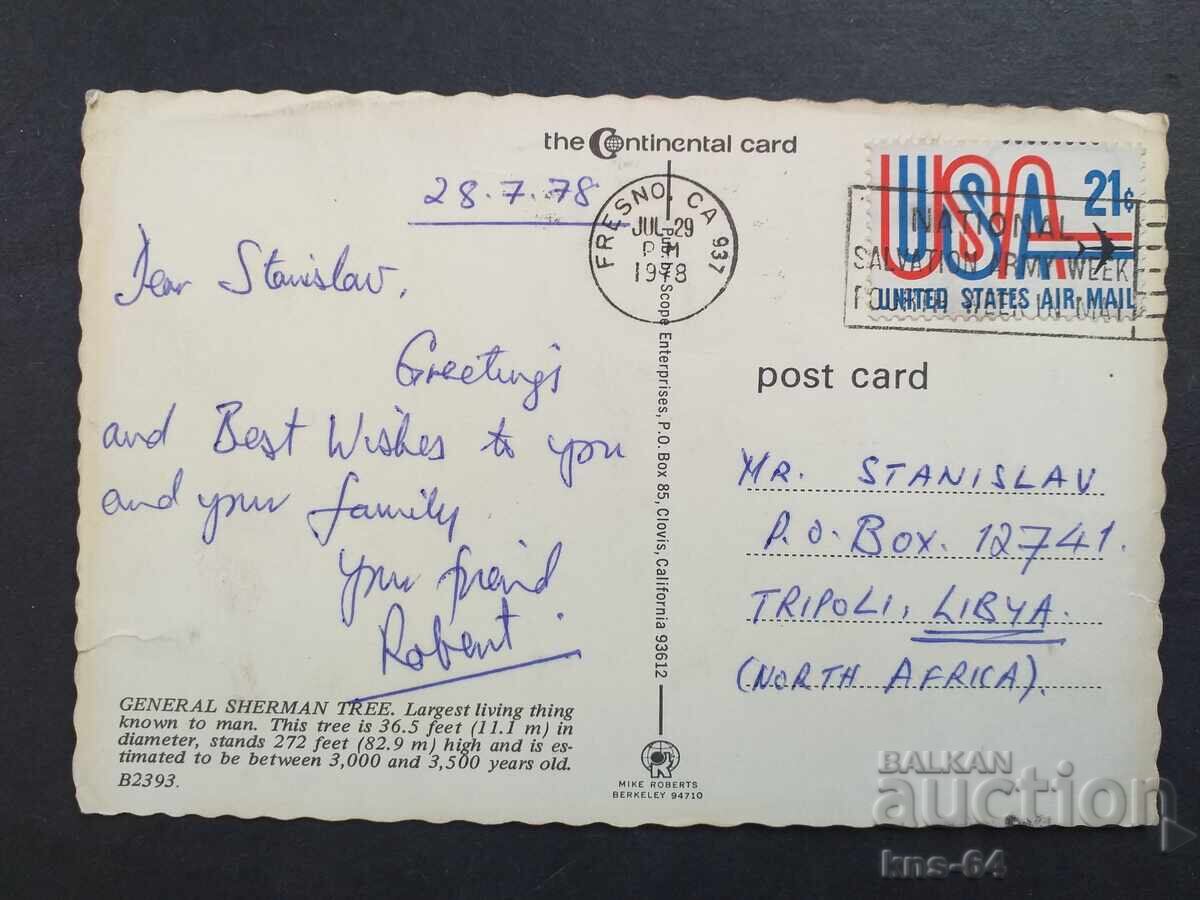 the Continental card
28.7.78
Dear Stanislav,
Greetings
and Best Wishes to you
and your family
Your friend
Robert.
GENERAL SHERMAN TREE. Largest living thing
known to man. This tree is 36.5 feet (11.1 m) in
diameter, stands 272 feet (82.9 m) high and is es-
timated to be between 3,000 and 3,500 years old.
B2393.
FRESNO, CA 937
JUL 29
PM
1978
Scope Enterprises, P.O. Box 85, Clovis, California 93612
MIKE ROBERTS
BERKELEY 94710
USA 21¢
UNITED STATES AIR MAIL
NATIONAL
SALVATION ARMY WEEK
WEEK IN MAY
post card
MR. STANISLAV
P.O. BOX. 12741.
TRIPOLI, LIBYA.
(NORTH AFRICA).
BALKAN
auction
kns-64